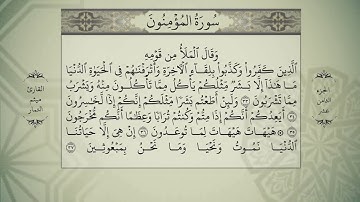 سُورَةُ المُؤْمِنُونَ
وَقَالَ ٱلْمَلَأُ مِن قَوْمِهِ
ٱلَّذِينَ كَفَرُوا۟ وَكَذَّبُوا۟ بِلِقَآءِ ٱلْآخِرَةِ وَأَتْرَفْنَٰهُمْ فِى ٱلْحَيَوٰةِ ٱلدُّنْيَا
مَا هَٰذَآ إِلَّا بَشَرٌ مِّثْلُكُمْ يَأْكُلُ مِمَّا تَأْكُلُونَ مِنْهُ وَيَشْرَبُ
مِمَّا تَشْرَبُونَ ٣٣ وَلَئِنْ أَطَعْتُم بَشَرًا مِّثْلَكُمْ إِنَّكُمْ إِذًا لَّخَٰسِرُونَ
٣٤ أَيَعِدُكُمْ أَنَّكُمْ إِذَا مِتُّمْ وَكُنتُمْ تُرَابًا وَعِظَٰمًا أَنَّكُم مُّخْرَجُونَ
٣٥ هَيْهَاتَ هَيْهَاتَ لِمَا تُوعَدُونَ ٣٦ إِنْ هِىَ إِلَّا حَيَاتُنَا
ٱلدُّنْيَا نَمُوتُ وَنَحْيَا وَمَا نَحْنُ بِمَبْعُوثِينَ ٣٧
الجزء
الثامن
عشر
القارئ
ميثم
التمار